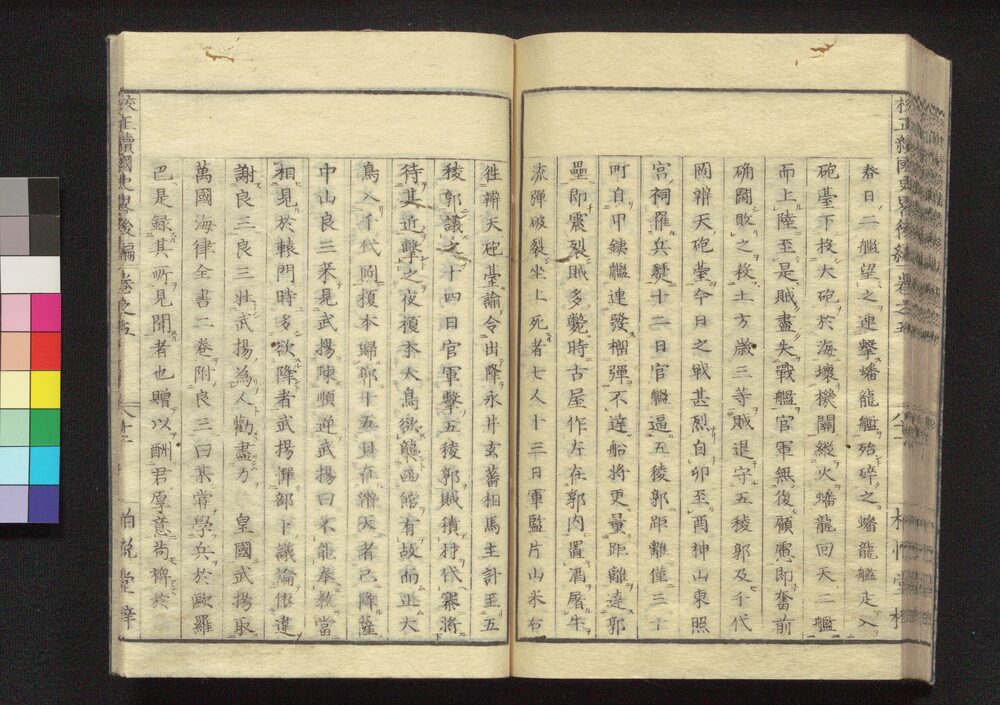 春日二艦望之連擊蟠龍艦殆碎之蟠龍艦走入
砲臺下投大砲於海壞機關縱火蟠龍回天二艦
而上陸至是賊盡失戰艦官軍無復顧慮即奮前
确鬪敗之殺土方歲三等賊退守五稜郭及千代
岡辨天砲臺今日之戰甚烈自卯至酉神山東照
宮祠羅兵燹十二日官艦逼五稜郭距離僅三十
町自甲鐵艦連發榴彈不達船將更量距離達郭
壘即震裂賊多斃時古屋作左在郭内置酒屠牛
流彈破裂坐上死者七人十三日軍監片山米右
徃辨天砲臺諭令出降永井玄蕃相馬主計至五
稜郭議之十四日官軍擊五稜郭賊積狩代寨將
待其近擊之夜榎本大鳥欲襲函館有故而止大
鳥入千代岡榎本歸郭十五日在辨天者已降薩
中山良三來見武揚陳順逆武揚曰不能奉教當
相見於轅門時多欲降者武揚渾部下議論依違
謝良三良三壯武揚為人勸盡力 皇國武揚取
萬國海律全書二卷附良三曰某嘗學兵於歐羅
巴是録其所見聞者也贈以酬君厚意苟裨於
校正續國史畧後編 卷之五
柏悅堂梓